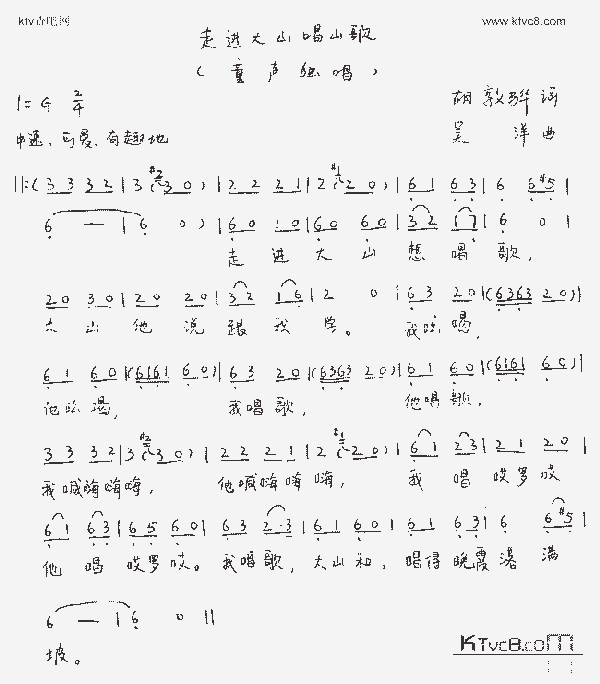 www.ktvc8.com
走进大山唱山歌
(童声独唱)
1=G 2/4
胡敦骅 词
中速、可爱、有趣地
吴 洋 曲
||:(3 3 3 2 | 3 3 0) | 2 2 2 1 | 2 2 0 | 6 1 6 3 | 6 6 #5 |
6 — | 6 0) | 6 0 1 0 | 6 0 6 0 | 3 2 1 7 | 6 0 |
走 进 大 山 想 唱 歌,
2 0 3 0 | 2 0 2 0 | 3 2 1 6 | 2 0 | 6 3 2 0 | (6363 2 0) |
大 山 他 说 跟 我 学。 我 唱,
6 1 6 0 | (6161 6 0) | 6 3 2 0 | (6363 2 0) | 6 1 6 0 | (6161 6 0) |
他 唱, 我唱歌, 他唱歌,
3 3 3 2 | 3 3 0) | 2 2 2 1 | 2 2 0) | 6 1 2 3 | 2 1 2 0 |
我喊嗨嗨嗨, 他喊嗨嗨嗨, 我 唱 哎罗哎
6 1 6 3 | 6 5 6 0 | 6 3 2·3 | 6 1 6 0 | 6 1 6 3 | 6 6 #5 |
他 唱 哎罗哎。 我唱歌, 大山和, 唱得晚霞 满
6 — | 6 0 ||
坡。
KTvc8.com